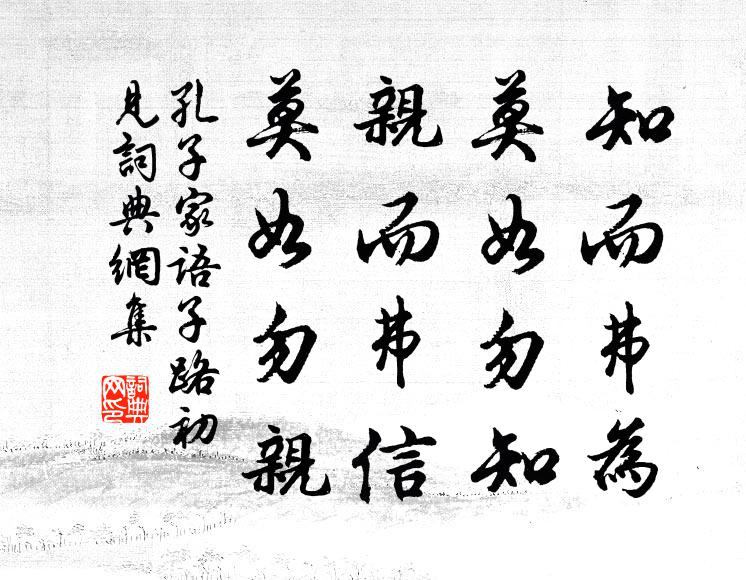 知而弗為
莫如勿知
親而弗信
莫如勿親
孔子家语子路初
見詞典網集
詞典
网印